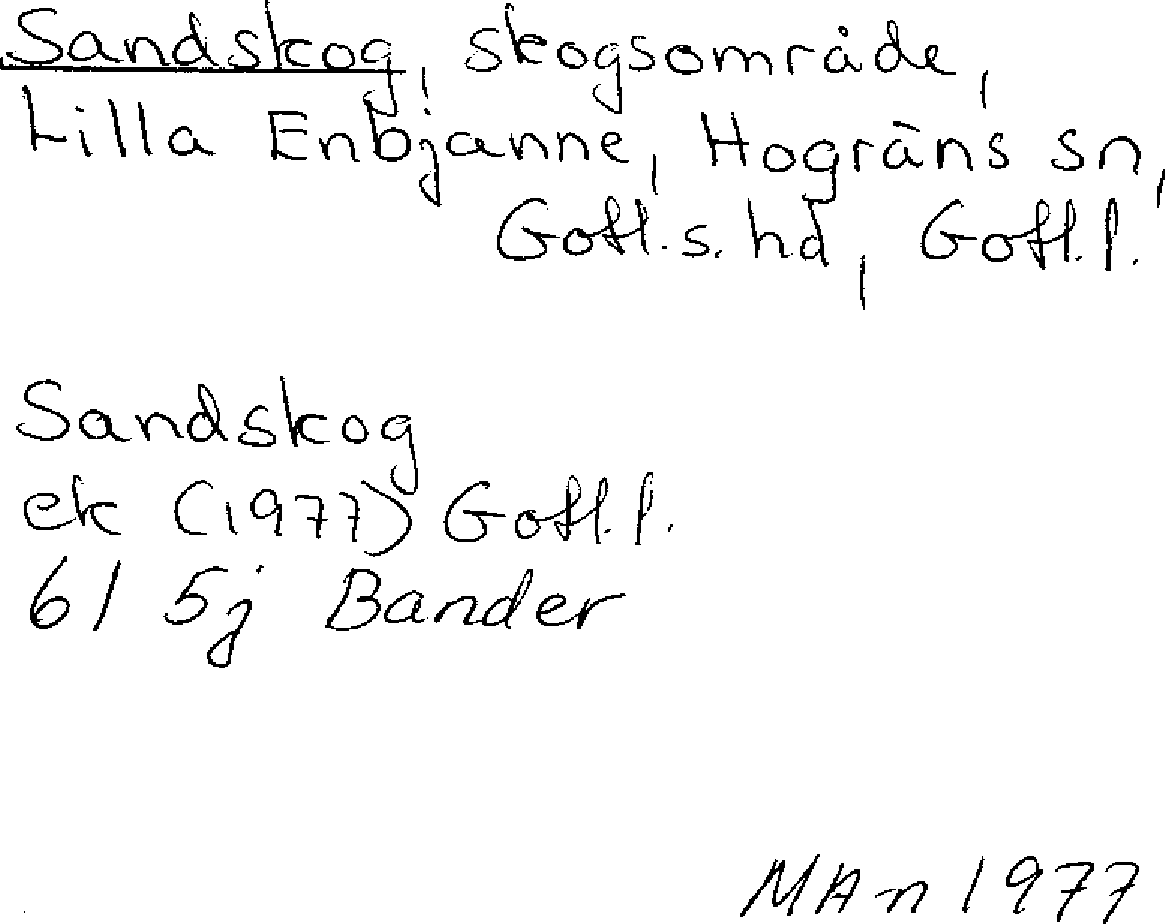 Sandskog, skogsområde,
Lilla Enbjänne, Hogräns sn,
Gotl. s. hd, Gotl. l.
Sandskog
ek (1977) Gotl. l.
6I 5j Bander
MAn 1977